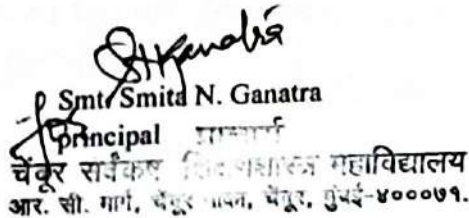 Smt. Smita N. Ganatra
principal प्राचार्य
चेंबूर सर्वंकष शिक्षणशास्त्र महाविद्यालय
आर. सी. मार्ग, चेंबूर नाका, चेंबूर, मुंबई-४०००७१.